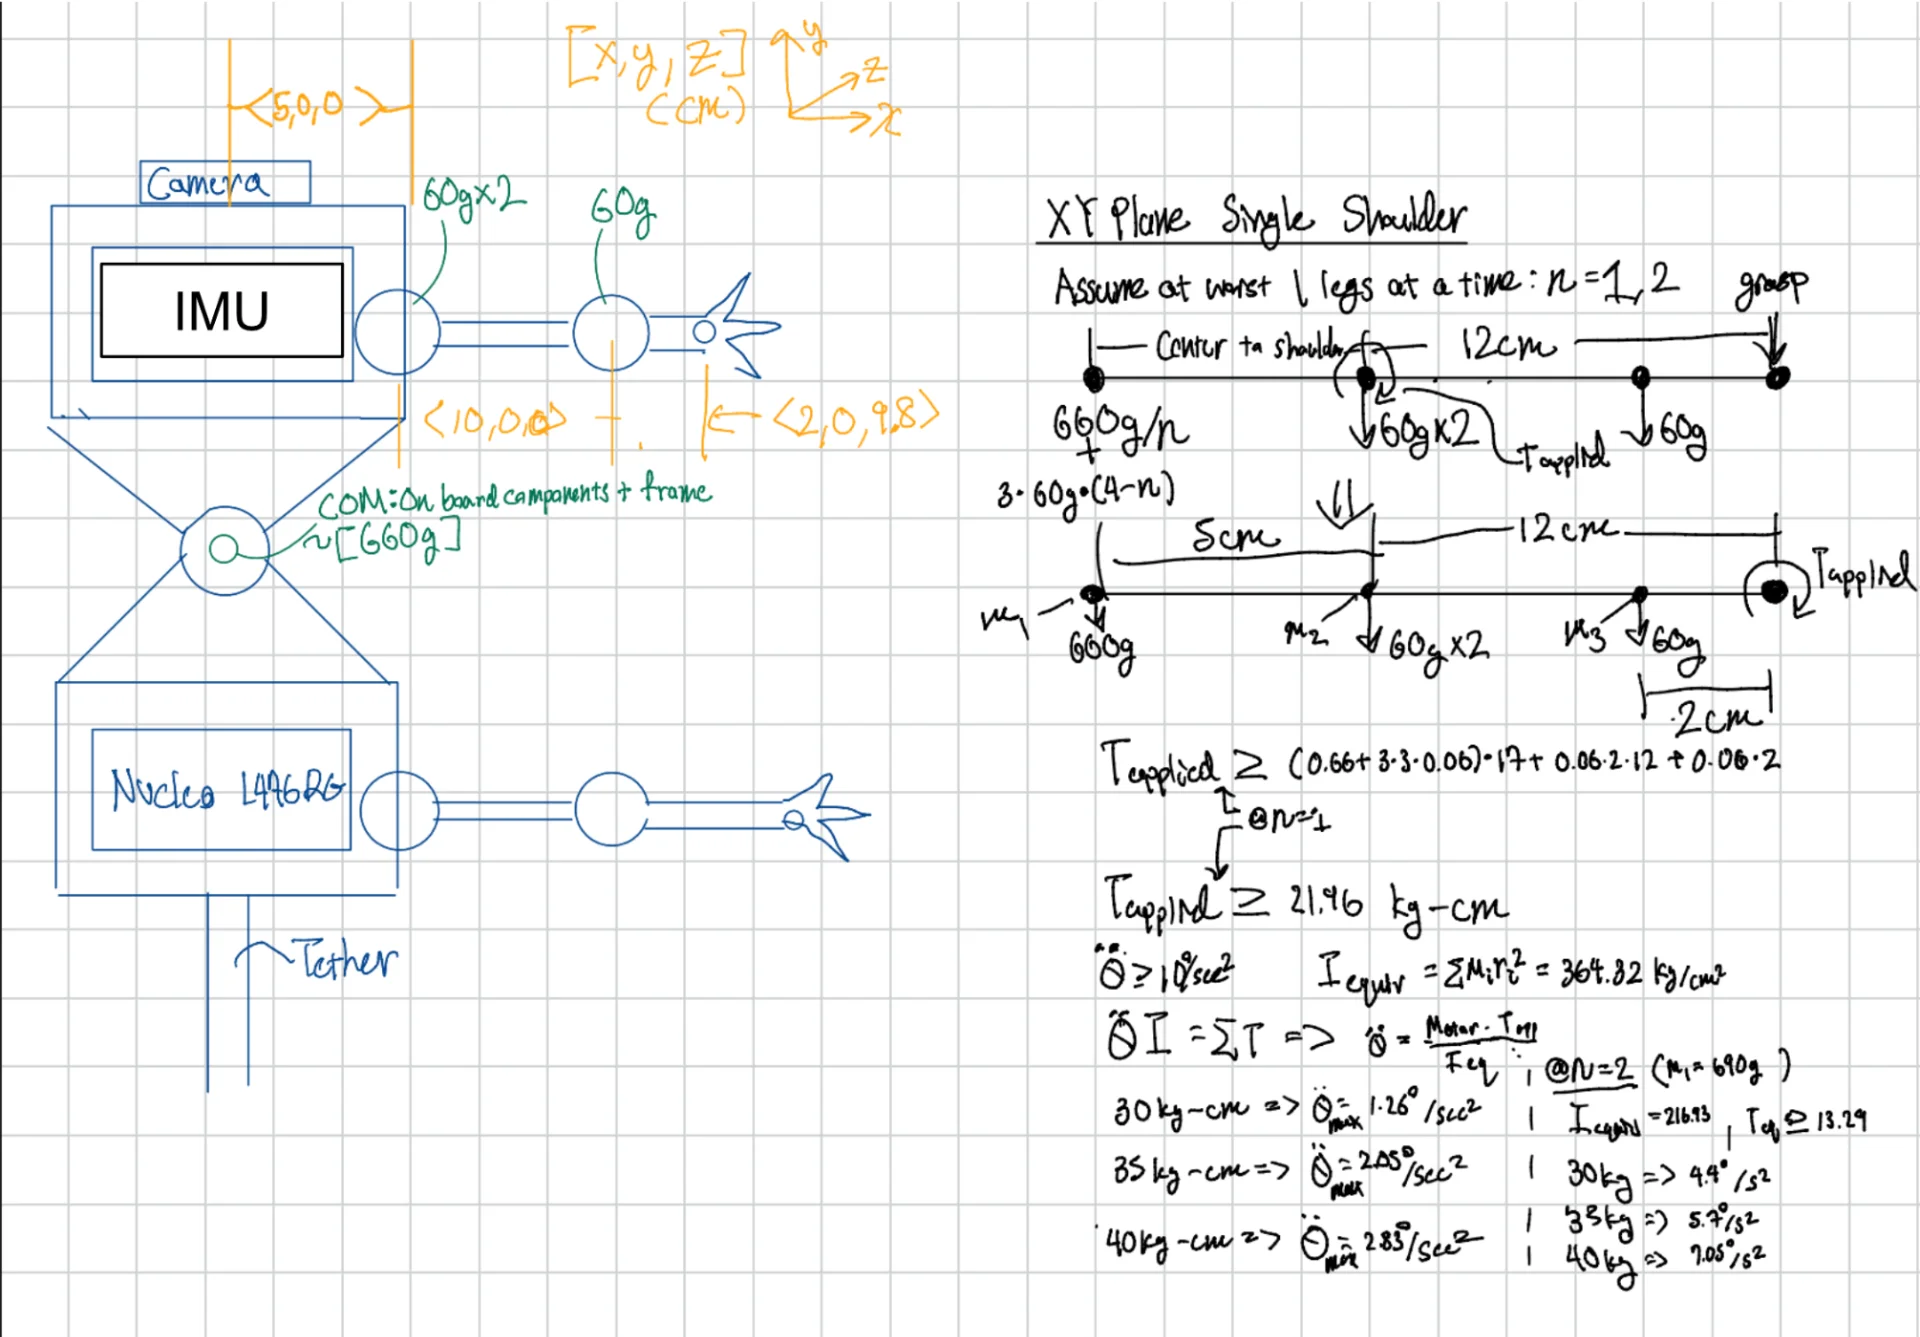 [x,y,z]
(cm)
y
z
x
<5,0,0>
Camera
60g×2
60g
IMU
<10,0,0>
<2,0,9.8>
COM: On board components + frame
~[660g]
Nucleo L476RG
Tether
XY Plane Single Shoulder
Assume at worst 1 legs at a time: n=1,2
grasp
Center to shoulder
12cm
660g/n
+
3·60g·(4-n)
60g×2
Tapplied
60g
5cm
12cm
Tapplied
m1
660g
m2
60g×2
m3
60g
2cm
Tapplied ≥ (0.66+3·3·0.06)·17+0.06·2·12+0.06·2
@n=1
Tapplied ≥ 21.96 kg-cm
θ̈ ≥ 10°/sec²
I equiv = ΣMiri² = 364.32 kg/cm²
θ̈ I = ΣT => θ̈ = Motor - Tapp / Ieq
@n=2 (m1=690g)
30kg-cm => θ̈max = 1.26°/sec²
Iequiv = 216.93, Teq ≥ 13.29
35kg-cm => θ̈max = 2.05°/sec²
30kg => 4.4°/s²
35kg => 5.7°/s²
40kg-cm => θ̈max = 2.83°/sec²
40kg => 7.05°/s²